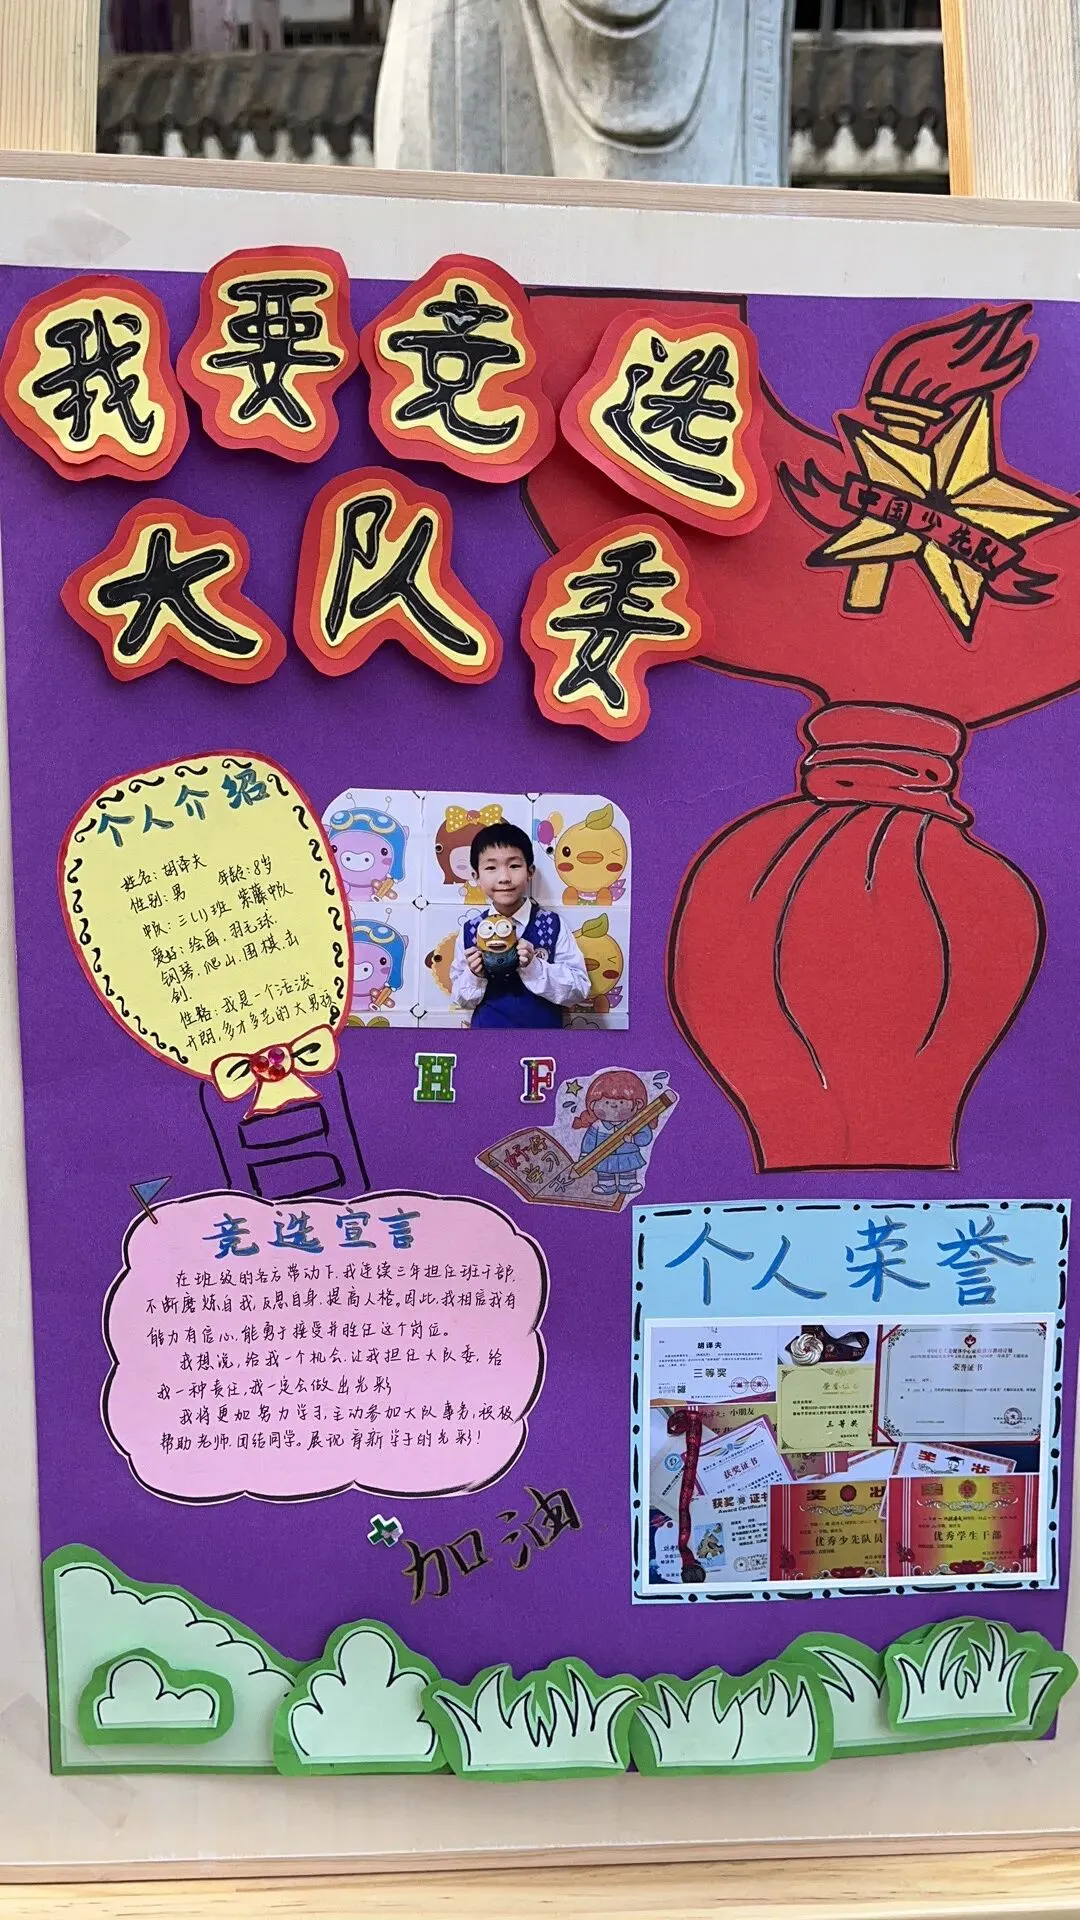 我要竞选
大队委
中国少先队
个人介绍
姓名：胡译夫 年龄：8岁
性别：男
中队：三(1)班 紫藤中队
爱好：绘画，羽毛球，
钢琴，爬山，围棋，击
剑，
性格：我是一个活泼
开朗，多才多艺的大男孩
H F
好好
学习
竞选宣言
在班级的各方带动下，我连续三年担任班干部，
不断磨炼自我，反思自身，提高人格。因此，我相信我有
能力有信心，能勇于接受并胜任这个岗位。
我想说，给我一个机会，让我担任大队委，给
我一种责任，我一定会做出光彩
我将更加努力学习，主动参加大队事务，积极
帮助老师，团结同学。展现育新学子的光彩！
加油
个人荣誉
胡译夫
三等奖
荣誉证书
三等奖
荣誉证书
小朋友
获奖证书
奖状
获奖证书
Award Certificate
奖状
优秀少先队员
奖状
优秀学生干部